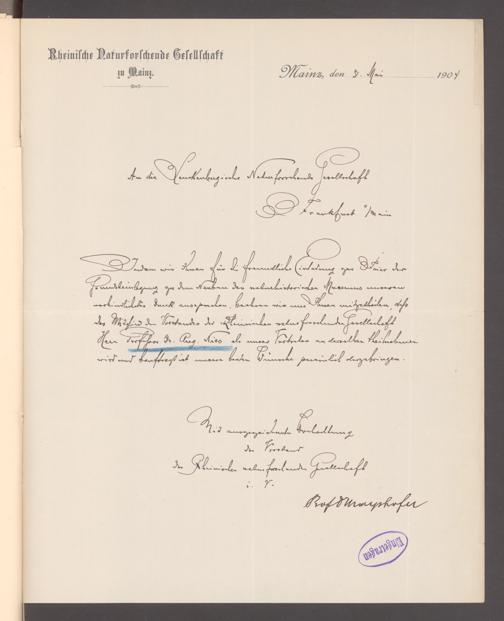 Rheinische Naturforschende Gesellschaft
zu Mainz.
Mainz, den 3. Mai 1904
An die Senckenbergische Naturforschende Gesellschaft
Frankfurt a/Main
Indem wir Ihnen für die freundliche Einladung zur Feier der
Grundsteinlegung zu dem Neubau des naturhistorischen Museums unseren
verbindlichsten Dank aussprechen, beehren wir uns Ihnen mitzutheilen, daß
das Mitglied des Vorstandes der Rheinischen naturforschenden Gesellschaft
Herr Professor Dr. Aug. Nies als unser Vertreter an derselben theilnehmen
wird und beauftragt ist unsere besten Wünsche persönlich darzubringen.
Mit ausgezeichneter Hochachtung
der Vorstand
der Rheinischen naturforschenden Gesellschaft
i. V.
Eingetragen